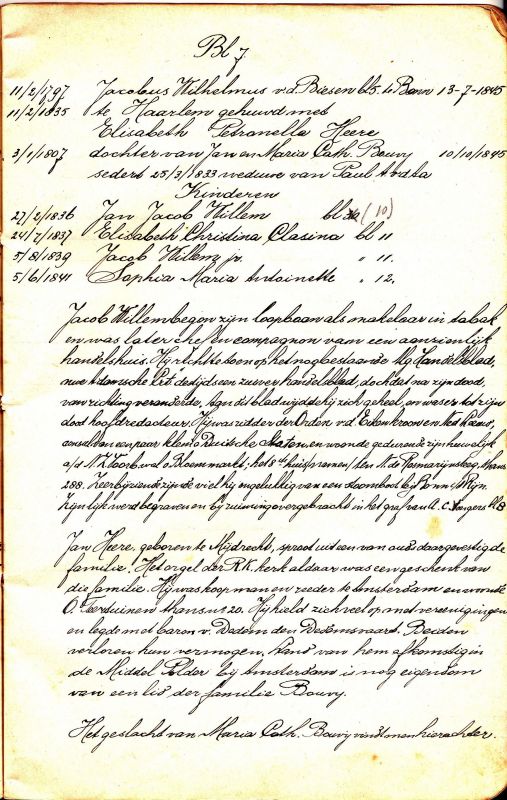 Bl 7.
11/2/1797 Jacobus Wilhelmus v.d. Biesen bl 5. te Bonn 13-7-1845
11/2/1835 te Haarlem gehuwd met
Elisabeth Petronella Heere
3/1/1807 dochter van Jan en Maria Cath. Bouvy 10/10/1845
sedert 25/3/1833 weduwe van Paul
Kinderen
27/2/1836 Jan Jacob Willem bl (10)
24/7/1837 Elisabeth Christina Clasina bl 11
5/8/1839 Jacob Willem jr. " 11.
5/6/1841 Sophia Maria Antoinette " 12.
Jacob Willem begon zijn loopbaan als makelaar in tabak
en was later chef en compagnon van een aanzienlijk
handelshuis. Hij richtte toen op het nog bestaande Alg. Handelsblad,
destijds een zuiver handelsblad, doch dat na zijn dood,
van richting veranderde. Aan dit blad wijdde hij zich geheel, en was er tot zijn
dood hoofdredacteur. Hij was ridder der Orden v.d. Eikenkroon en
een paar kleine Duitsche Staten, en woonde gedurende zijn huwelijk
a/d N.Z. Voorb. wal o. Bloemmarkt; het 8ste huis ten N. de Rosmarijnsteeg, thans
288. Zeer bijziende zijnde viel hij ongelukkig van een stoomboot bij Bonn a/Rijn.
Zijn lijk werd begraven en bij ruiming overgebracht in het graf van A. C.
Jan Heere, geboren te Mijdrecht, sproot uit een van ouds daar gevestigde
familie. Het orgel der R.K. kerk aldaar was een geschenk van
die familie. Hij was koopman en reeder te Amsterdam en woonde
O. Teertuinen thans no 20. Hij hield zich veel op met vereenigingen
en legde met baron v. Dedem den Dedemsvaart. Beiden
verloren hun vermogen. Land van hem afkomstig in
de Middel Polder bij Amsterdam is nog eigendom
van een lid der familie Bouvy.
Het geslacht van Maria Cath. Bouvy vindt men hierachter.